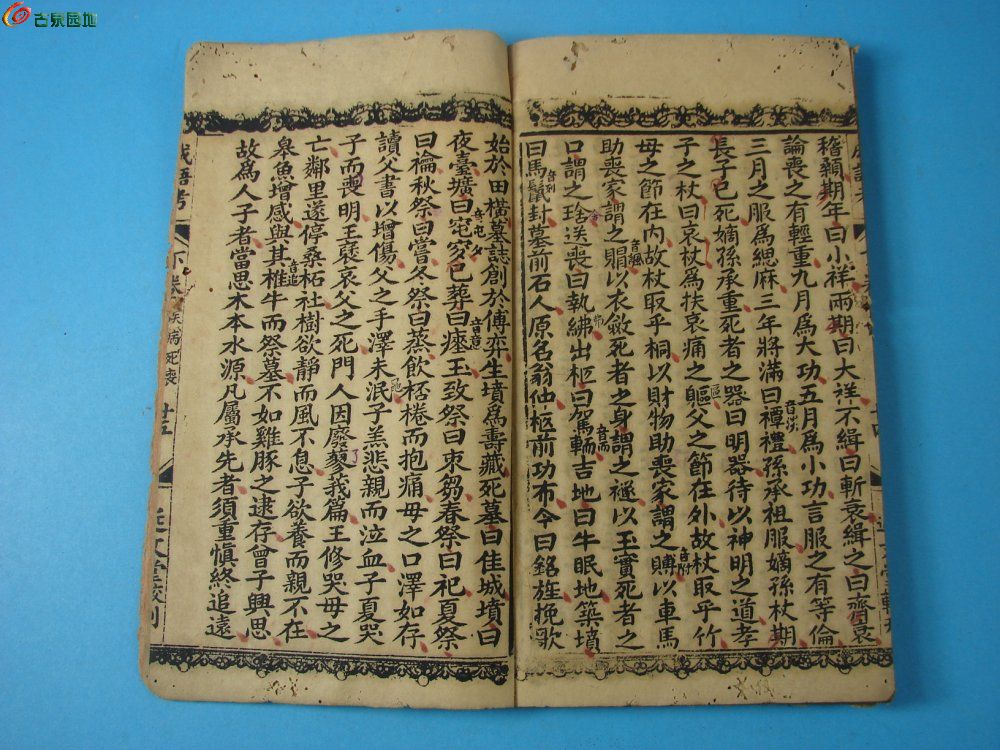 古泉园地
稽顙期年曰小祥兩期曰大祥不緝曰斬衰緝之曰齊衰
論喪之有輕重九月為大功五月為小功言服之有等倫
三月之服為緦麻三年將滿曰禫禮孫承祖服嫡孫杖期
長子已死嫡孫承重死者之器曰明器待以神明之道孝
子之杖曰哀杖為扶哀痛之軀父之節在外故杖取乎竹
母之節在內故杖取乎桐以財物助喪家謂之賻以車馬
助喪家謂之賵以衣斂死者之身謂之襚以玉實死者之
口謂之琀送喪曰執紼出柩曰駕輀吉地曰牛眠地築墳
曰馬鬣封墓前石人原名翁仲柩前功布今曰銘旌挽歌
始於田橫墓誌創於傅奕生墳為壽藏死墓曰佳城墳曰
夜臺壙曰窀穸已葬曰瘞玉致祭曰束芻春祭曰祀夏祭
曰禴秋祭曰嘗冬祭曰蒸飲桮棬而抱痛母之口澤如存
讀父書以增傷父之手澤未泯子羔悲親而泣血子夏哭
子而喪明王裒哀父之死門人因廢蓼莪篇王修哭母之
亡鄰里遂停桑柘社樹欲靜而風不息子欲養而親不在
皋魚增感與其椎牛而祭墓不如雞豚之逮存曾子興思
故為人子者當思木本水源凡屬承先者須重慎終追遠
成語考
下卷
疾病死喪
廿五